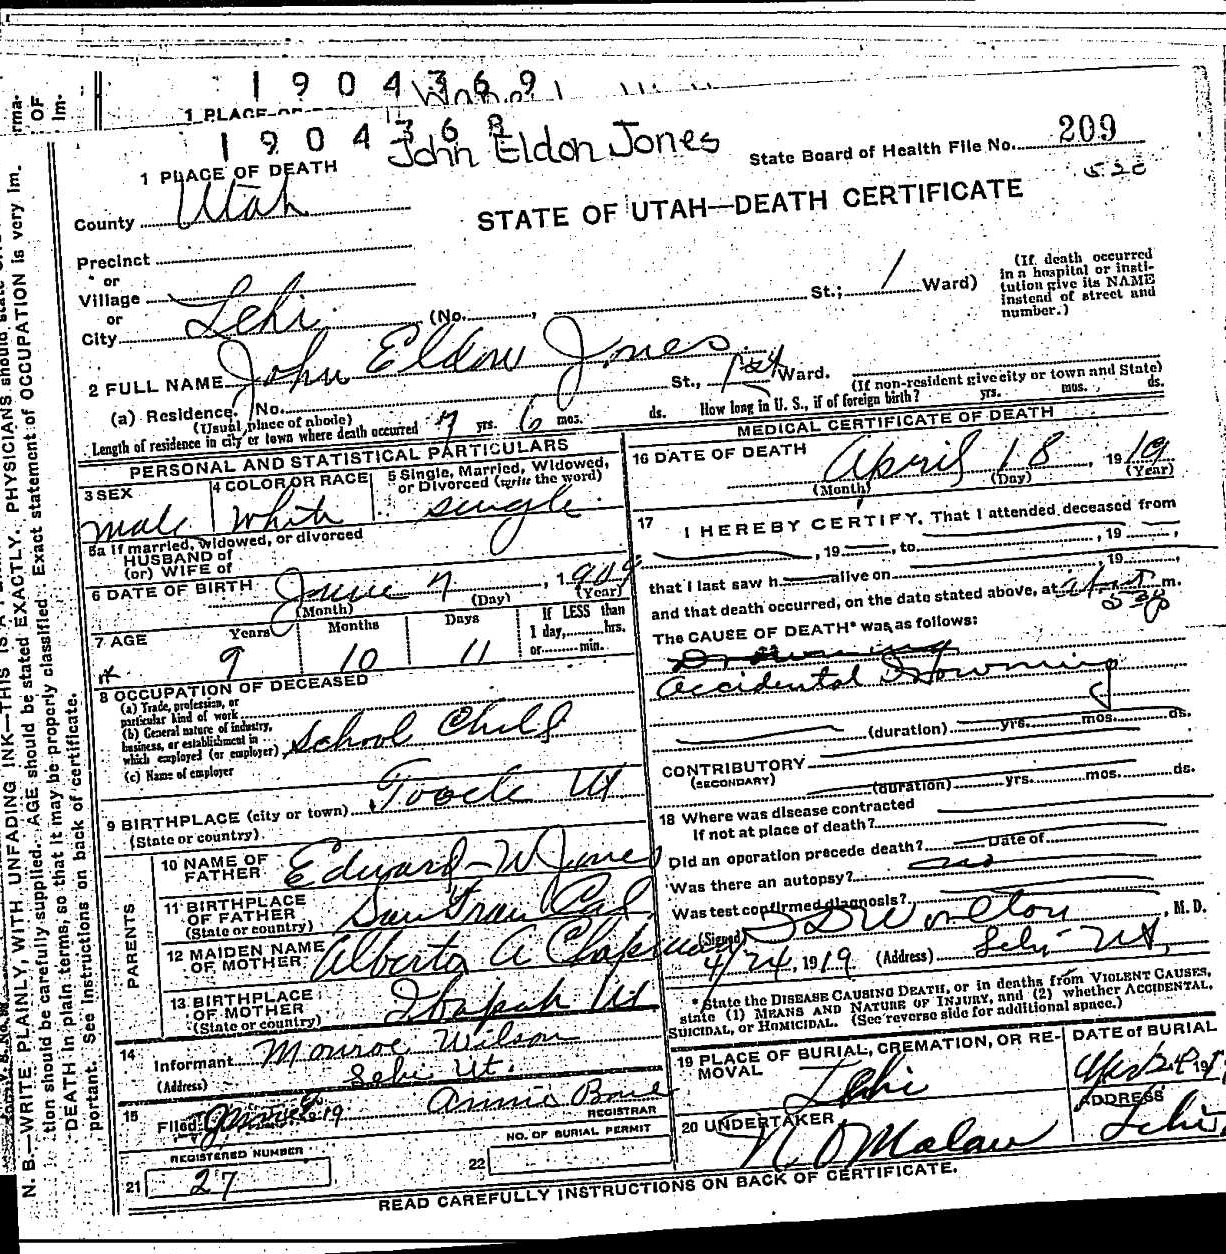 1 9 0 4 3 6 9
1 PLACE OF
1 9 0 4 3 6 8
John Eldon Jones
State Board of Health File No. 209
1 PLACE OF DEATH
County Utah
STATE OF UTAH—DEATH CERTIFICATE
Precinct
or
Village
or
City Lehi (No. , St.; 1 Ward)
(If death occurred in a hospital or institution give its NAME instead of street and number.)
2 FULL NAME John Eldon Jones
(a) Residence. No. St., 1st Ward.
(Usual place of abode) (If non-resident give city or town and State)
Length of residence in city or town where death occurred 7 yrs. 6 mos. ds. How long in U. S., if of foreign birth? yrs. mos. ds.
PERSONAL AND STATISTICAL PARTICULARS
3 SEX
male
4 COLOR OR RACE
White
5 Single, Married, Widowed,
or Divorced (write the word)
single
5a If married, widowed, or divorced
HUSBAND of
(or) WIFE of
6 DATE OF BIRTH June 7, 1909
(Month) (Day) (Year)
7 AGE Years Months Days If LESS than
1 day, hrs.
or min.
9 10 11
8 OCCUPATION OF DECEASED
(a) Trade, profession, or
particular kind of work
(b) General nature of industry,
business, or establishment in
which employed (or employer) School Child
(c) Name of employer
9 BIRTHPLACE (city or town) Tooele Ut
(State or country)
PARENTS
10 NAME OF
FATHER Edward W Jones
11 BIRTHPLACE
OF FATHER San Fran Cal
(State or country)
12 MAIDEN NAME
OF MOTHER Alberta A Chapman
13 BIRTHPLACE
OF MOTHER Ibapah Ut
(State or country)
14
Informant Monroe Wilson
(Address) Lehi Ut.
15
Filed 19 Annie
REGISTRAR
REGISTERED NUMBER
21 27
NO. OF BURIAL PERMIT
22
MEDICAL CERTIFICATE OF DEATH
16 DATE OF DEATH April 18, 1919
(Month) (Day) (Year)
17 I HEREBY CERTIFY, That I attended deceased from
, 19 , to , 19 ,
that I last saw h alive on 19 ,
and that death occurred, on the date stated above, at about m.
The CAUSE OF DEATH* was as follows:
Drowning
Accidental Drowning
(duration) yrs. mos. ds.
CONTRIBUTORY
(SECONDARY)
(duration) yrs. mos. ds.
18 Where was disease contracted
If not at place of death?
Did an operation precede death? Date of
Was there an autopsy? no
Was test confirmed diagnosis?
(Signed) Worlton, M. D.
4/24, 1919 (Address) Lehi Ut,
*State the DISEASE CAUSING DEATH, or in deaths from VIOLENT CAUSES,
state (1) MEANS AND NATURE OF INJURY, and (2) whether ACCIDENTAL,
SUICIDAL, or HOMICIDAL. (See reverse side for additional space.)
19 PLACE OF BURIAL, CREMATION, OR RE-
MOVAL
Lehi
DATE OF BURIAL
20 UNDERTAKER
ADDRESS
Lehi
READ CAREFULLY INSTRUCTIONS ON BACK OF CERTIFICATE.
N. B.—WRITE PLAINLY, WITH UNFADING INK—THIS IS A
tion should be carefully supplied. AGE should be stated EXACTLY. PHYSICIANS should state
DEATH in plain terms, so that it may be properly classified. Exact statement of OCCUPATION is very im-
portant. See instructions on back of certificate.